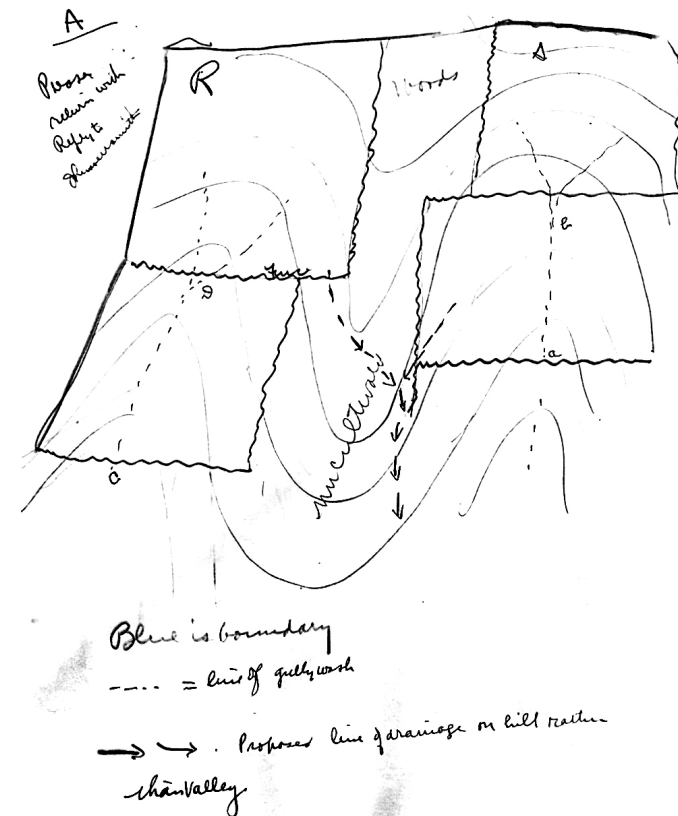 A
Please
return with
Reply to
R
Woods
A
b
D
a
uncultivated
C
Blue is boundary
---·· = line of gully wash
→ → . Proposed line of drainage on hill rather
than Valley